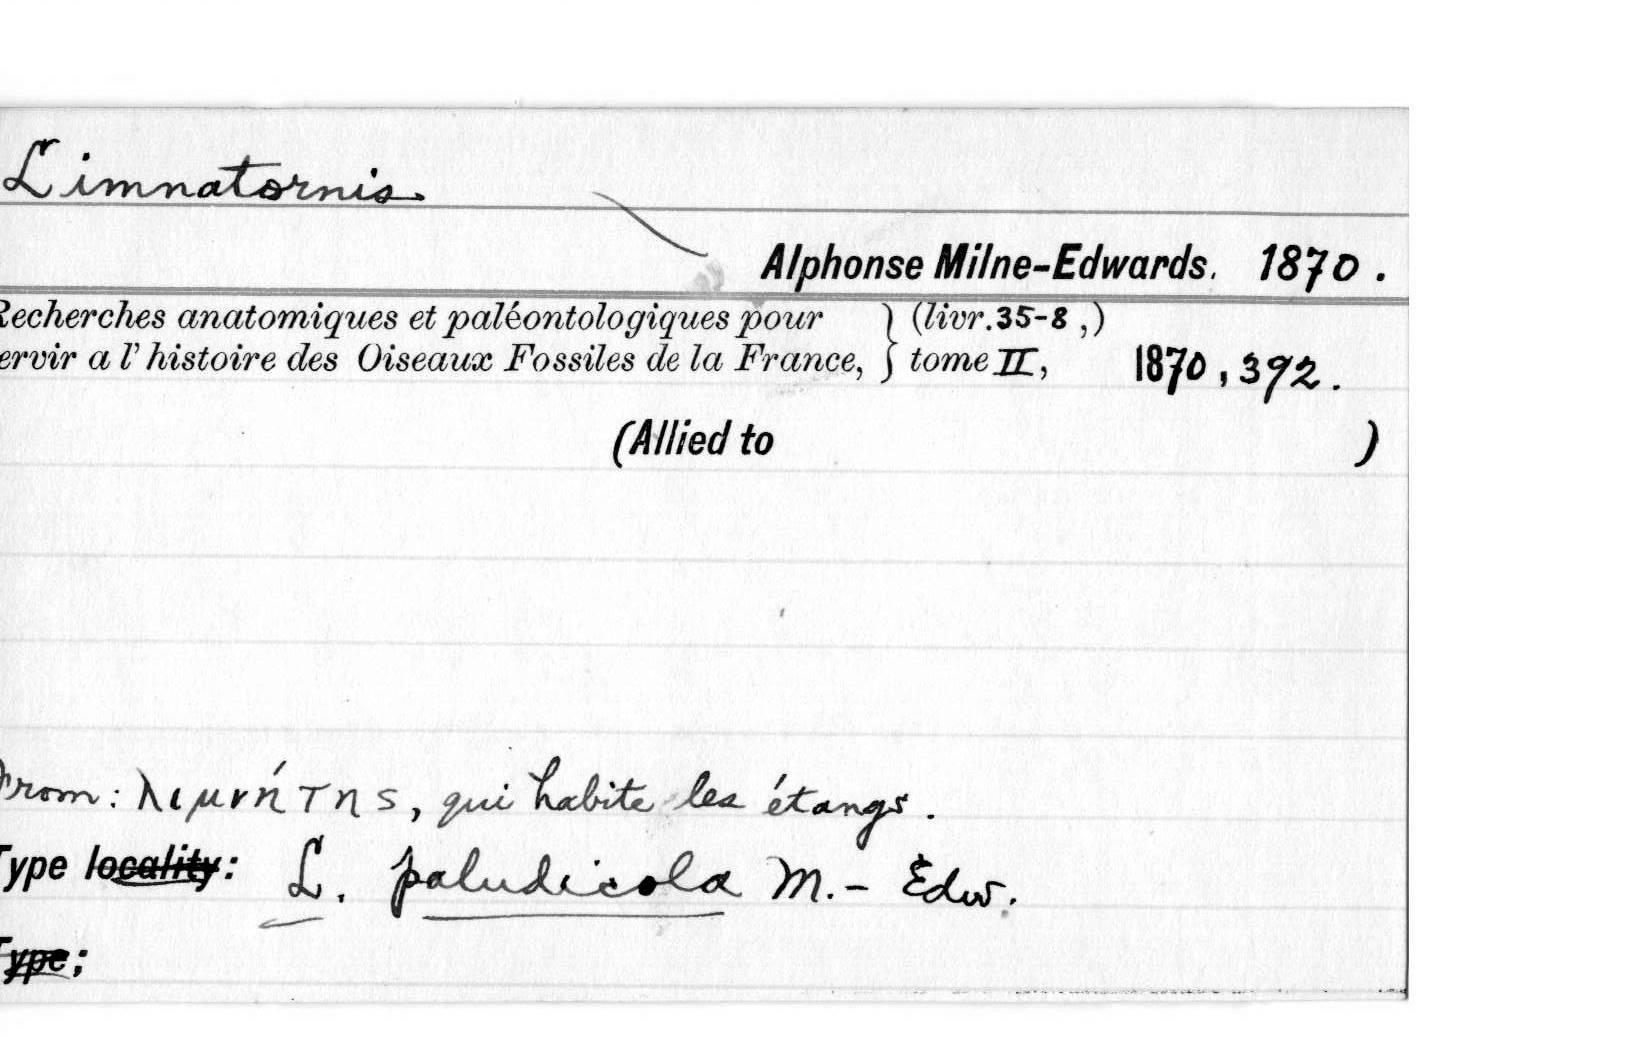 Limnatornis
Alphonse Milne-Edwards. 1870.
Recherches anatomiques et paléontologiques pour } (livr. 35-8,)
ervir a l'histoire des Oiseaux Fossiles de la France, } tome II, 1870, 392.
(Allied to )
From: λιμνήτης, qui habite les étangs.
Type locality: L. paludicola M.-Edw.
Type;